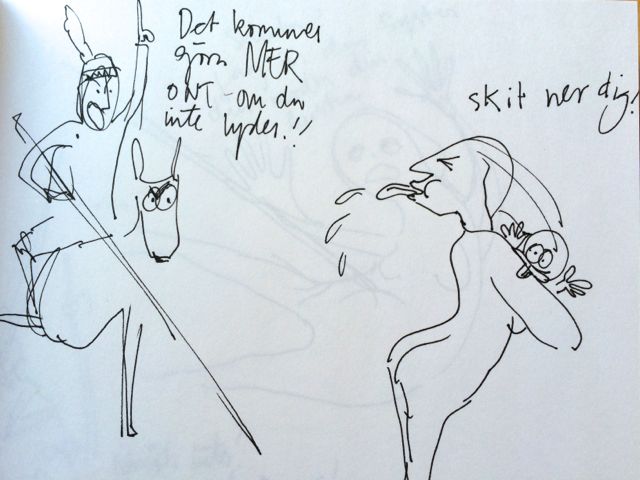 Det kommer
göra MER
ONT - om du
inte lyder!!
skit ner dig!